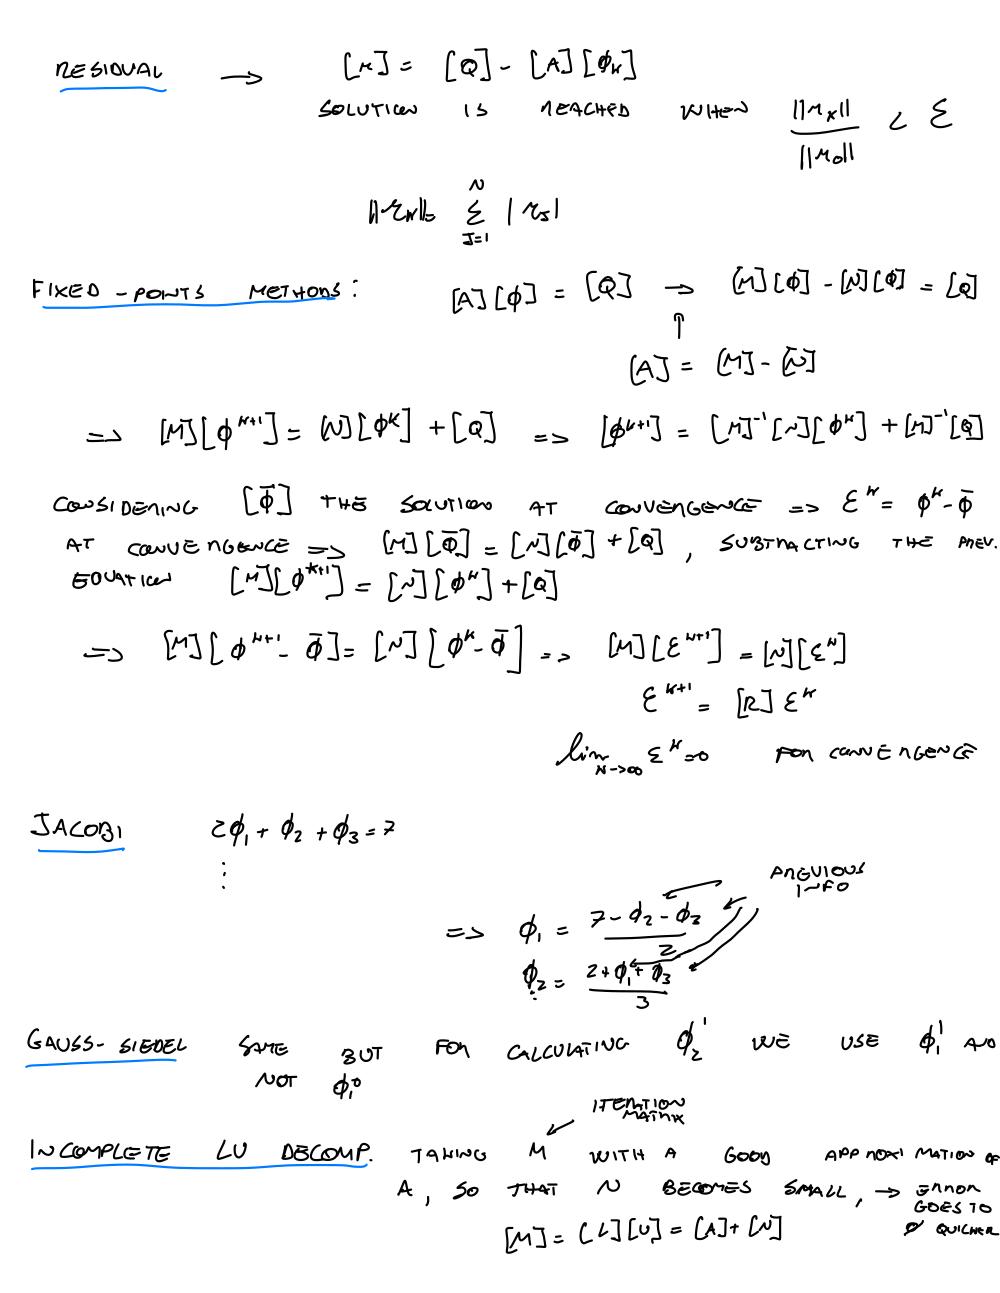 RESIDUAL → [r] = [Q] - [A][ϕk]
SOLUTION IS REACHED WHEN ||rk|| / ||r0|| < ε
||rk|| = Σ_{J=1}^{N} |rJ|
FIXED-POINTS METHODS: [A][ϕ] = [Q] → [M][ϕ] - [N][ϕ] = [Q]
↑
[A] = [M] - [N]
=> [M][ϕ^{k+1}] = [N][ϕ^k] + [Q] => [ϕ^{k+1}] = [M]^{-1}[N][ϕ^k] + [M]^{-1}[Q]
CONSIDERING [ϕ̄] THE SOLUTION AT CONVERGENCE => ε^k = ϕ^k - ϕ̄
AT CONVERGENCE => [M][ϕ̄] = [N][ϕ̄] + [Q], SUBTRACTING THE PREV.
EQUATION [M][ϕ^{k+1}] = [N][ϕ^k] + [Q]
=> [M][ϕ^{k+1} - ϕ̄] = [N][ϕ^k - ϕ̄] => [M][ε^{k+1}] = [N][ε^k]
ε^{k+1} = [R] ε^k
lim_{k->∞} ε^k = 0 FOR CONVERGENCE
JACOBI 2ϕ1 + ϕ2 + ϕ3 = 7
⋮
PREVIOUS
INFO
=> ϕ1 = (7 - ϕ2 - ϕ3) / 2
ϕ2 = (2 + ϕ1 + ϕ3) / 3
⋮
GAUSS-SIEDEL SAME BUT FOR CALCULATING ϕ2^1 WE USE ϕ1^1 AND
NOT ϕ1^0
ITERATION
MATRIX
INCOMPLETE LU DECOMP. TAKING M WITH A GOOD APPROXIMATION OF
A, SO THAT N BECOMES SMALL, → ERROR
GOES TO
0 QUICKER
[M] = [L][U] = [A] + [N]